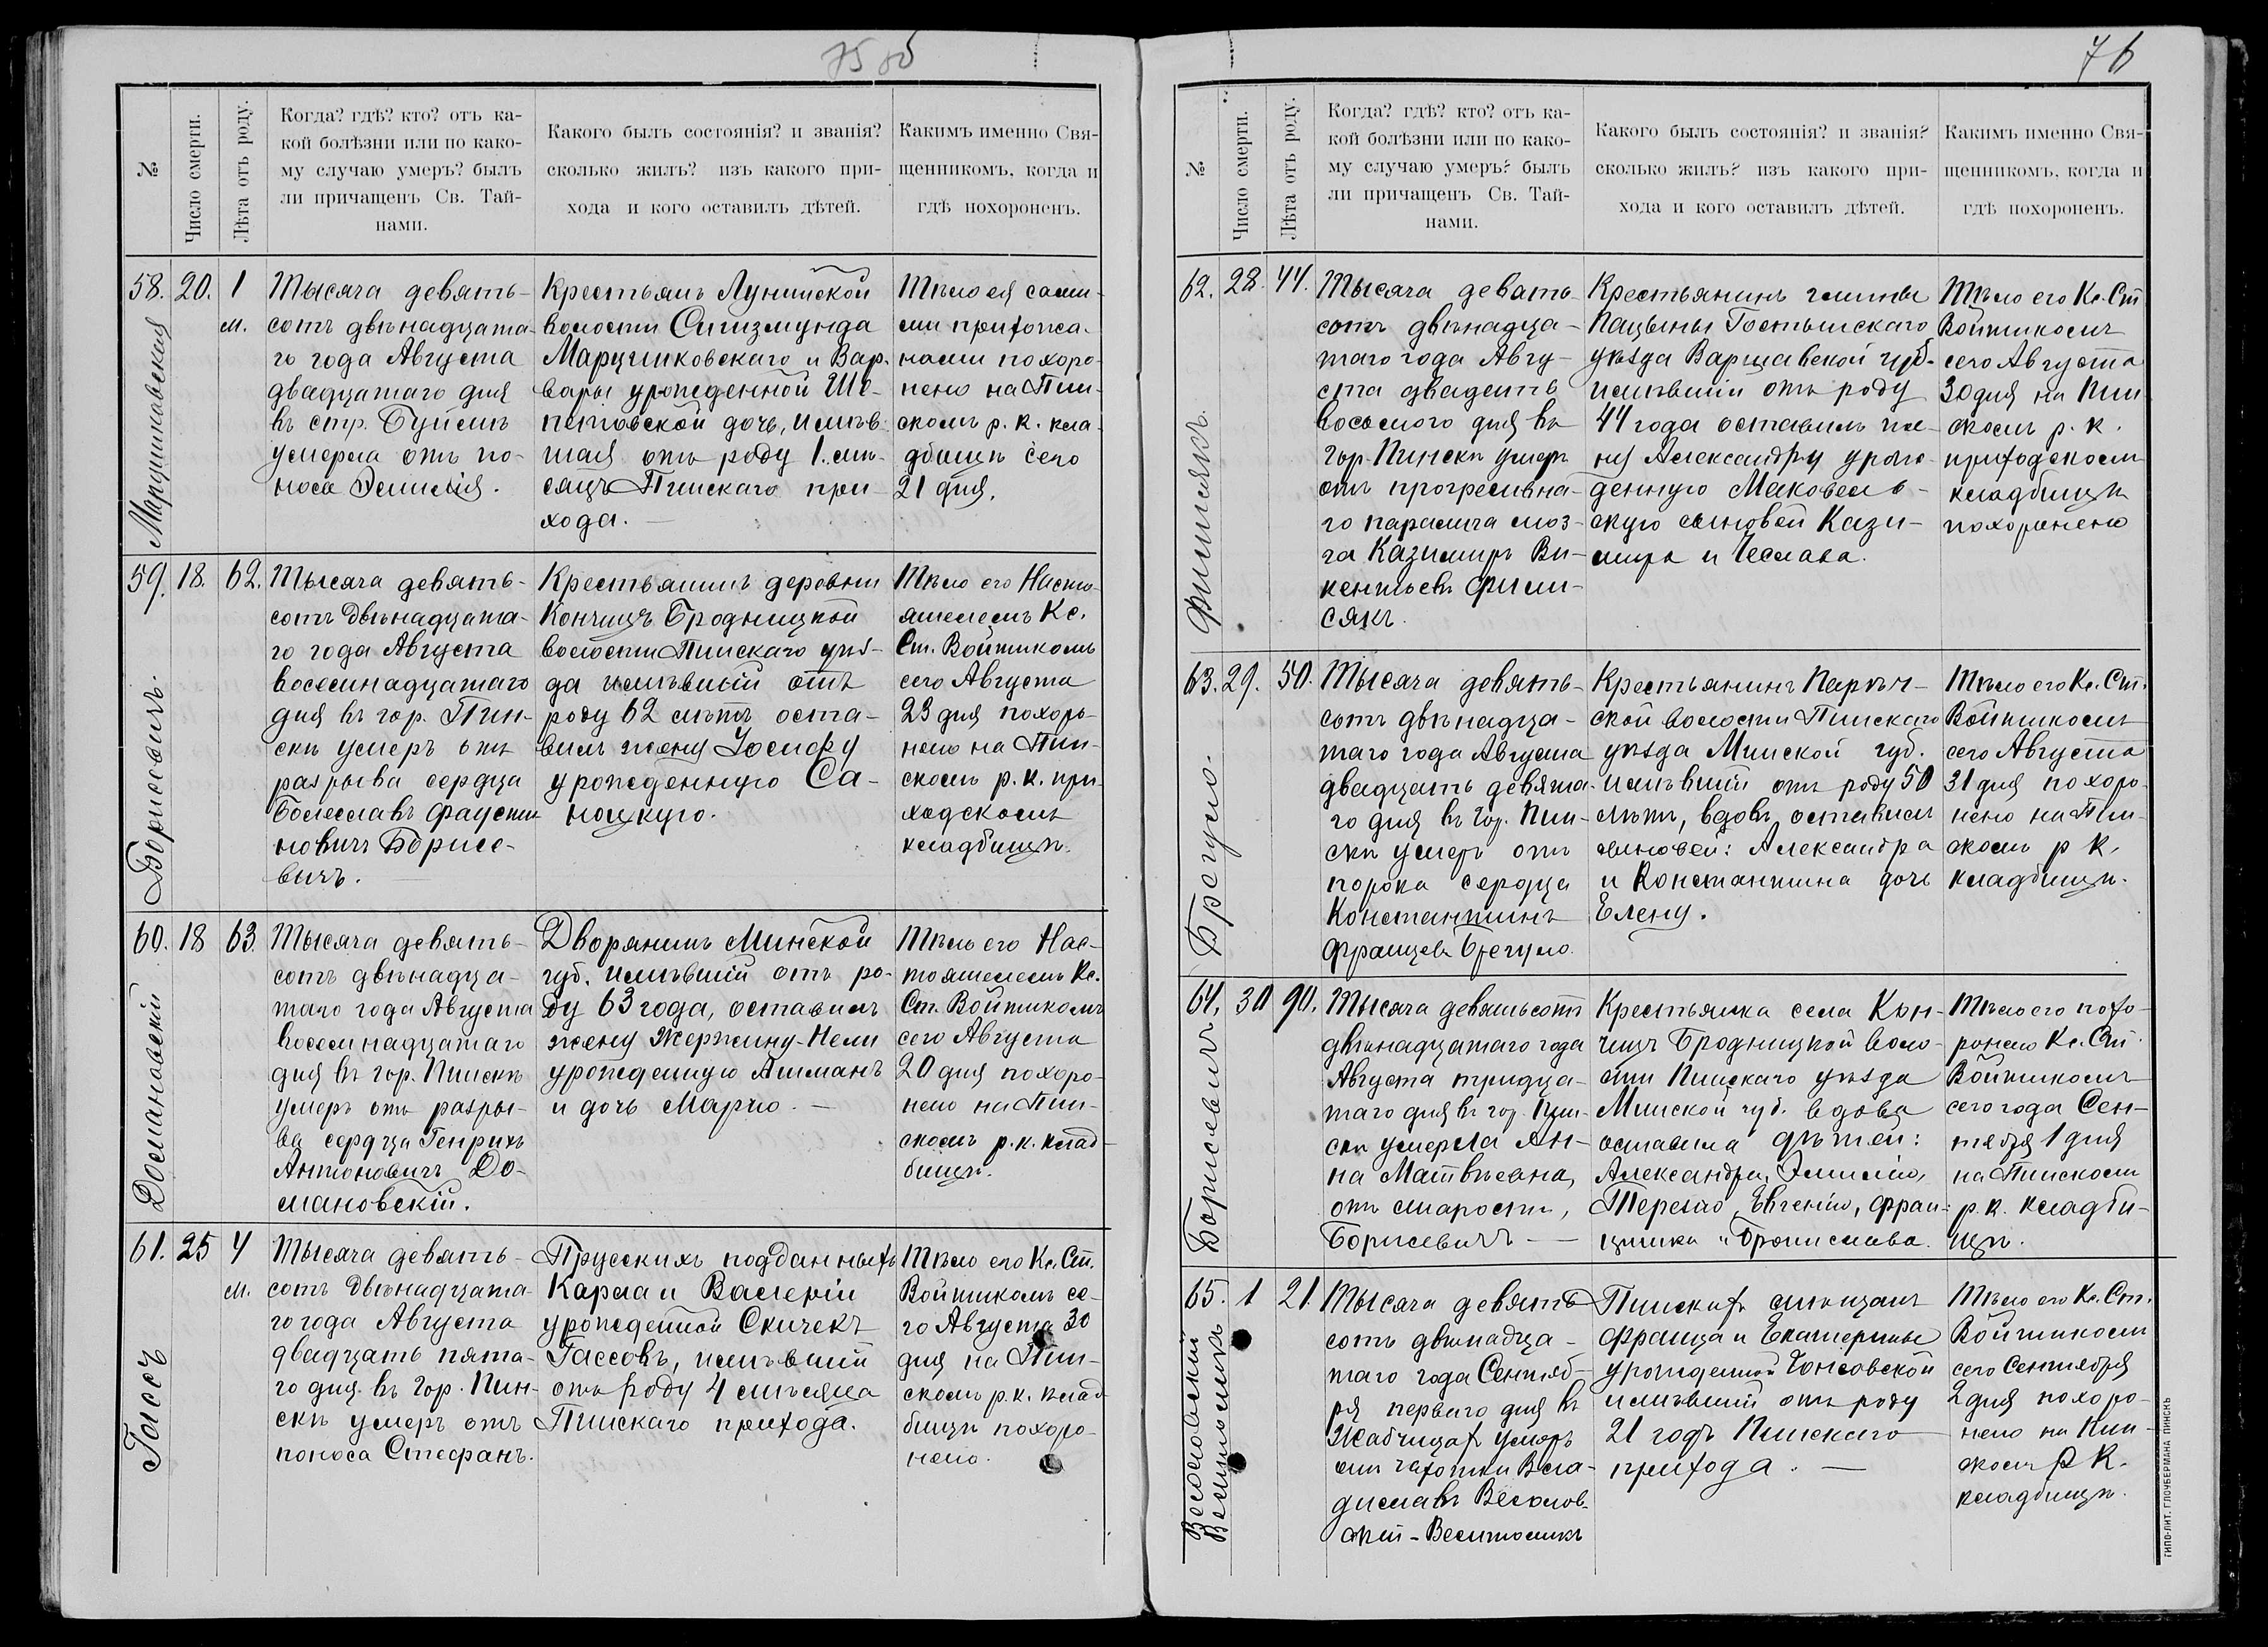 75 об
№
Число смерти.
Лѣта отъ роду.
Когда? гдѣ? кто? отъ ка-
кой болѣзни или по како-
му случаю умеръ? былъ
ли причащенъ Св. Тай-
нами.
Какого былъ состоянія? и званія?
сколько жилъ? изъ какого при-
хода и кого оставилъ дѣтей.
Какимъ именно Свя-
щенникомъ, когда и
гдѣ похороненъ.
58. 20. 1
м.
Тысяча девять-
сотъ двѣнадцата-
го года Августа
двадцатаго дня
въ стр.
умерла отъ по-
носа Эмилія.
Крестьянъ Лунинской
волости Сигизмунда
Марцинковскаго и Вар-
вары урожденной Ше-
петовской дочь, имѣв-
шая отъ роду 1 мѣ-
сяцъ Пинскаго при-
хода.
Тѣло ея сами-
ми прихожа-
нами похоро-
нено на Пин-
скомъ р. к. кла-
дбищѣ сего
21 дня.
59. 18. 62.
Борисовичъ.
Тысяча девять-
сотъ двѣнадцата-
го года Августа
восемнадцатаго
дня въ гор. Пин-
скѣ умеръ отъ
разрыва сердца
Болеславъ Фаусти
новичъ Борисе-
вичъ.
Крестьянинъ деревни
Кончицъ Бродницкой
волости Пинскаго уѣз-
да имѣвшій отъ
роду 62 лѣтъ оста-
вилъ жену Іосифу
урожденную Са-
ноцкую.
Тѣло его Насто-
ятелемъ Кс.
Ст. Войтикомъ
сего Августа
23 дня похоро-
нено на Пин-
скомъ р. к. при-
ходскомъ
кладбищѣ.
60. 18 63.
Домановскій
Тысяча девять-
сотъ двѣнадца-
таго года Августа
восемнадцатаго
дня въ гор. Пинскѣ
умеръ отъ разры-
ва сердца Генрихъ
Антоновичъ До-
мановскій.
Дворянинъ Минской
губ. имѣвшій отъ ро-
ду 63 года, оставилъ
жену
урожденную
и дочь Марію.
Тѣло его Нас-
тоятелемъ Кс.
Ст. Войтикомъ
сего Августа
20 дня похоро-
нено на Пин-
скомъ р. к. клад-
бищѣ.
61. 25 4
м.
Гассъ
Тысяча девять-
сотъ двѣнадцата-
го года Августа
двадцать пята-
го дня въ гор. Пин-
скѣ умеръ отъ
поноса Стефанъ.
Прусскихъ подданныхъ
Карла и Валеріи
урожденной Скичекъ
Гассовъ, имѣвшій
отъ роду 4 мѣсяца
Пинскаго прихода.
Тѣло его Кс. Ст.
Войтикомъ се-
го Августа 30
дня на Пин-
скомъ р. к. клад-
бищѣ похоро-
нено.
76
№
Число смерти.
Лѣта отъ роду.
Когда? гдѣ? кто? отъ ка-
кой болѣзни или по како-
му случаю умеръ? былъ
ли причащенъ Св. Тай-
нами.
Какого былъ состоянія? и званія?
сколько жилъ? изъ какого при-
хода и кого оставилъ дѣтей.
Какимъ именно Свя-
щенникомъ, когда и
гдѣ похороненъ.
62. 28. 44.
Тысяча девять-
сотъ двѣнадца-
таго года Авгу-
ста двадцать
восьмого дня въ
гор. Пинскѣ умеръ
отъ прогресивна-
го паралича моз-
га Казимиръ Ви-
кентьевъ Фили-
сякъ.
Крестьянинъ гмины
Пацыны Гостынскаго
уѣзда Варшавской губ.
имѣвшій отъ роду
44 года оставилъ же-
ну Александру урож-
денную Маковель-
скую сыновей Кази-
мира и Чеслава.
Тѣло его Кс. Ст
Войтикомъ
сего Августа
30 дня на Пин
скомъ р. к.
приходскомъ
кладбищѣ
похоронено
63. 29. 50.
Брегуло.
Тысяча девять-
сотъ двѣнадца-
таго года Августа
двадцать девята-
го дня въ гор. Пин-
скѣ умеръ отъ
порока сердца
Константинъ
Францевъ Брегуло.
Крестьянинъ Парѣч-
ской волости Пинскаго
уѣзда Минской губ.
имѣвшій отъ роду 50
лѣтъ, вдовъ, оставилъ
сыновей: Александра
и Константина дочь
Елену.
Тѣло его Кс. Ст.
Войтикомъ
сего Августа
31 дня похоро-
нено на Пин-
скомъ р к.
кладбищѣ.
64. 30 90.
Борисевичъ
Тысяча девятьсотъ
двѣнадцатаго года
Августа тридца-
таго дня въ гор. Пин-
скѣ умерла Ан-
на Матвѣевна,
отъ старости,
Борисевичъ
Крестьянка села Кон-
чицъ Бродницкой воло-
сти Пинскаго уѣзда
Минской губ. вдова
оставила дѣтей:
Александра, Эмилію,
Терезію, Евгенію, Фран-
цишка и Бронислава.
Тѣло его похо-
ронено Кс. Ст.
Войтикомъ
сего года Сен-
тября 1 дня
на Пинскомъ
р. к. кладби-
щѣ.
65. 1 21.
Тысяча девять
сотъ двѣнадца-
таго года Сентяб-
ря перваго дня въ
Жабчицахъ умеръ
отъ чахотки Вла-
диславъ
Пинскихъ мѣщанъ
Франца и Екатерины
урожденной
имѣвшій отъ роду
21 годъ Пинскаго
прихода.
Тѣло его Кс. Ст.
Войтикомъ
сего Сентября
2 дня похоро-
нено на Пин-
скомъ р к.
кладбищѣ.
ТИПО-ЛИТ. ГЛОУБЕРМАНА ПИНСКЪ